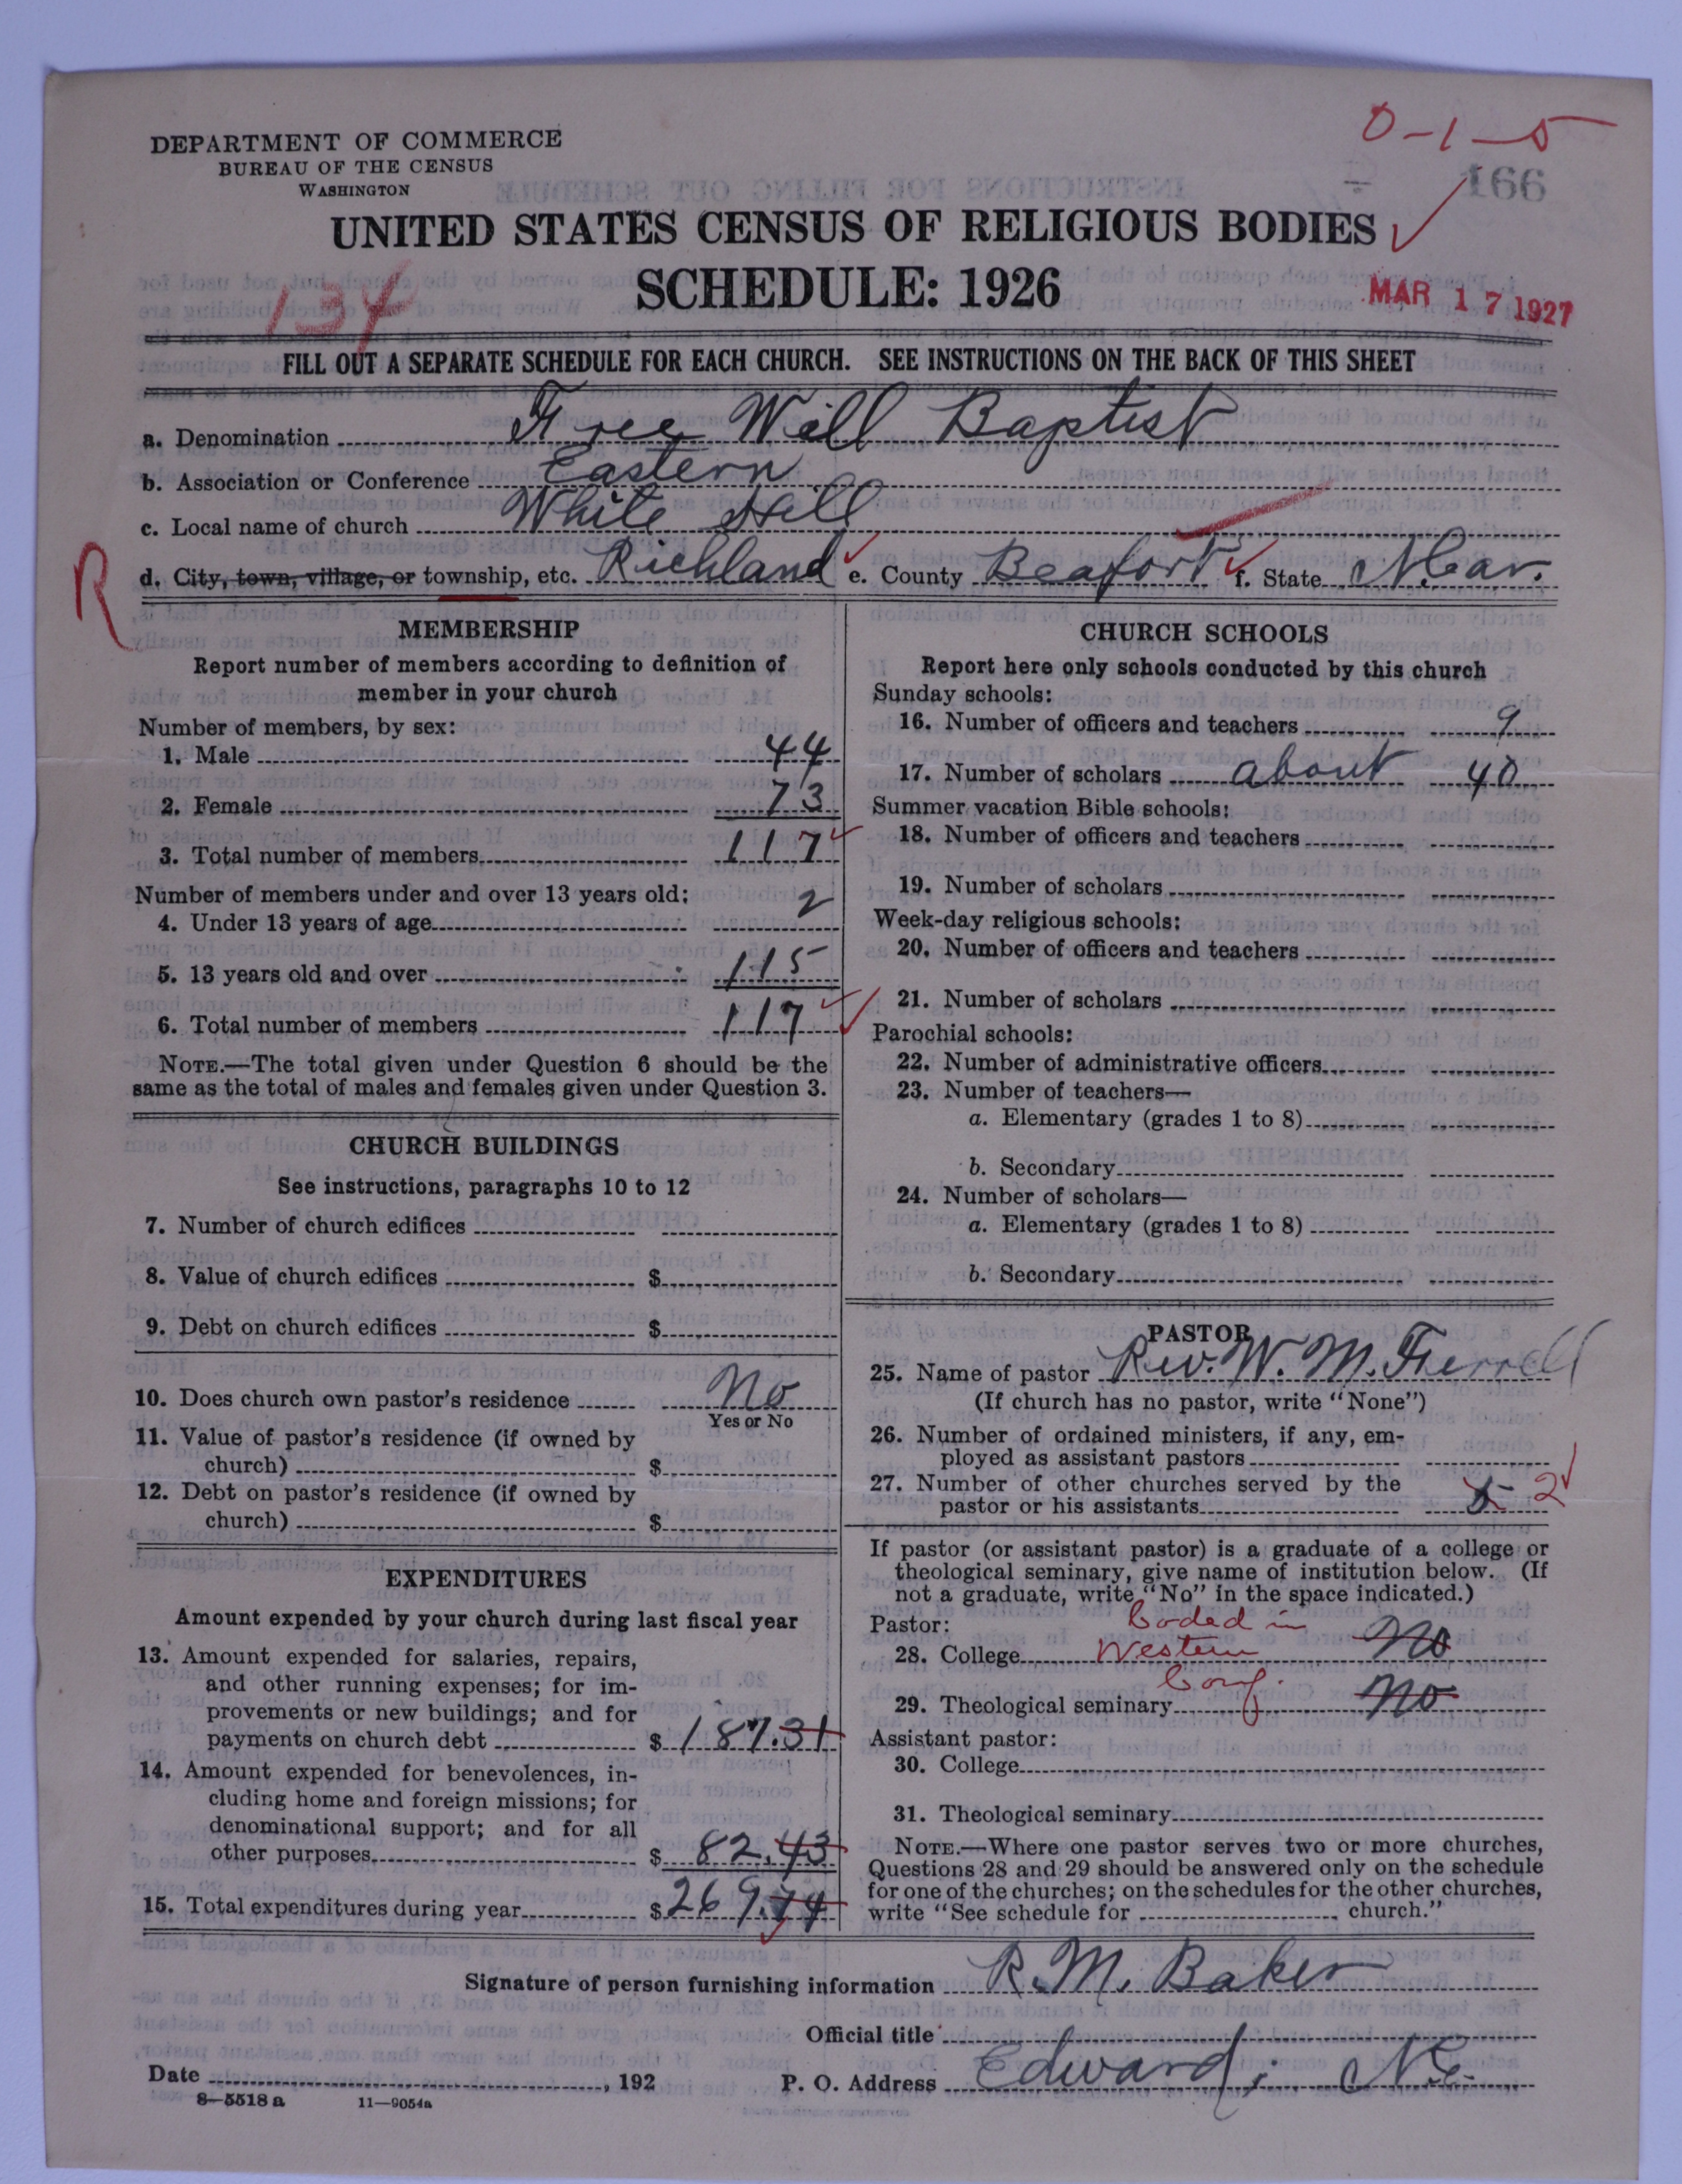 0-1-5
DEPARTMENT OF COMMERCE
BUREAU OF THE CENSUS
WASHINGTON
166
UNITED STATES CENSUS OF RELIGIOUS BODIES
SCHEDULE: 1926
134
MAR 17 1927
FILL OUT A SEPARATE SCHEDULE FOR EACH CHURCH. SEE INSTRUCTIONS ON THE BACK OF THIS SHEET
a. Denomination Free Will Baptist
b. Association or Conference Eastern
c. Local name of church White Hill
R
d. City, town, village, or township, etc. Richland e. County Beafort f. State N. Car.
MEMBERSHIP
Report number of members according to definition of
member in your church
Number of members, by sex:
1. Male 44
2. Female 73
3. Total number of members 117
Number of members under and over 13 years old:
4. Under 13 years of age 2
5. 13 years old and over 115
6. Total number of members 117
NOTE.—The total given under Question 6 should be the
same as the total of males and females given under Question 3.
CHURCH BUILDINGS
See instructions, paragraphs 10 to 12
7. Number of church edifices
8. Value of church edifices $
9. Debt on church edifices $
10. Does church own pastor's residence No
Yes or No
11. Value of pastor's residence (if owned by
church) $
12. Debt on pastor's residence (if owned by
church) $
EXPENDITURES
Amount expended by your church during last fiscal year
13. Amount expended for salaries, repairs,
and other running expenses; for im-
provements or new buildings; and for
payments on church debt $187.31
14. Amount expended for benevolences, in-
cluding home and foreign missions; for
denominational support; and for all
other purposes $82.43
15. Total expenditures during year $269.74
CHURCH SCHOOLS
Report here only schools conducted by this church
Sunday schools:
16. Number of officers and teachers 9
17. Number of scholars about 40
Summer vacation Bible schools:
18. Number of officers and teachers
19. Number of scholars
Week-day religious schools:
20. Number of officers and teachers
21. Number of scholars
Parochial schools:
22. Number of administrative officers
23. Number of teachers—
a. Elementary (grades 1 to 8)
b. Secondary
24. Number of scholars—
a. Elementary (grades 1 to 8)
b. Secondary
PASTOR
25. Name of pastor Rev. W. M. Ferrell
(If church has no pastor, write "None")
26. Number of ordained ministers, if any, em-
ployed as assistant pastors
27. Number of other churches served by the
pastor or his assistants 5 2
If pastor (or assistant pastor) is a graduate of a college or
theological seminary, give name of institution below. (If
not a graduate, write "No" in the space indicated.)
Pastor: Coded in
28. College Western No
Conf.
29. Theological seminary No
Assistant pastor:
30. College
31. Theological seminary
NOTE.—Where one pastor serves two or more churches,
Questions 28 and 29 should be answered only on the schedule
for one of the churches; on the schedules for the other churches,
write "See schedule for church."
Signature of person furnishing information R. M. Baker
Official title
Date , 192
P. O. Address Edward, N.C.
8-5518 a 11—9054a